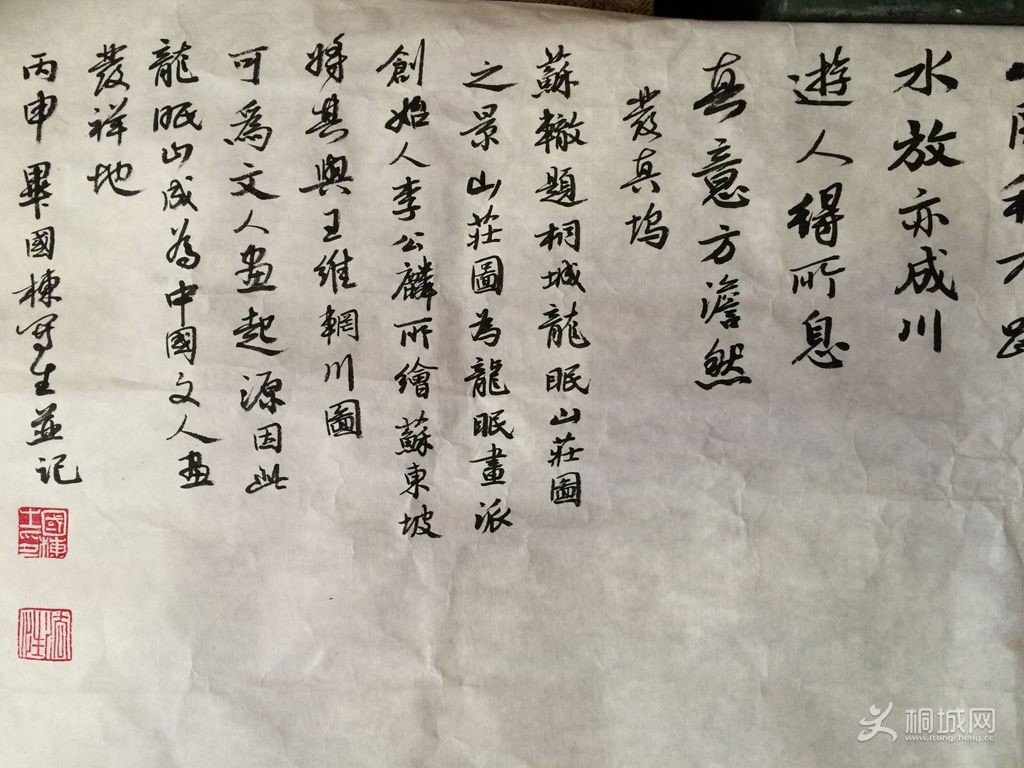 水放亦成川
遊人得所息
真意方澹然
發真塢
蘇轍題桐城龍眠山莊圖
之景山莊圖為龍眠畫派
創始人李公麟所繪蘇東坡
將其與王維輞川圖
可為文人畫起源因此
龍眠山成為中國文人畫
發祥地
丙申畢國棟寫生並记
桐城网
www.itongcheng.cc